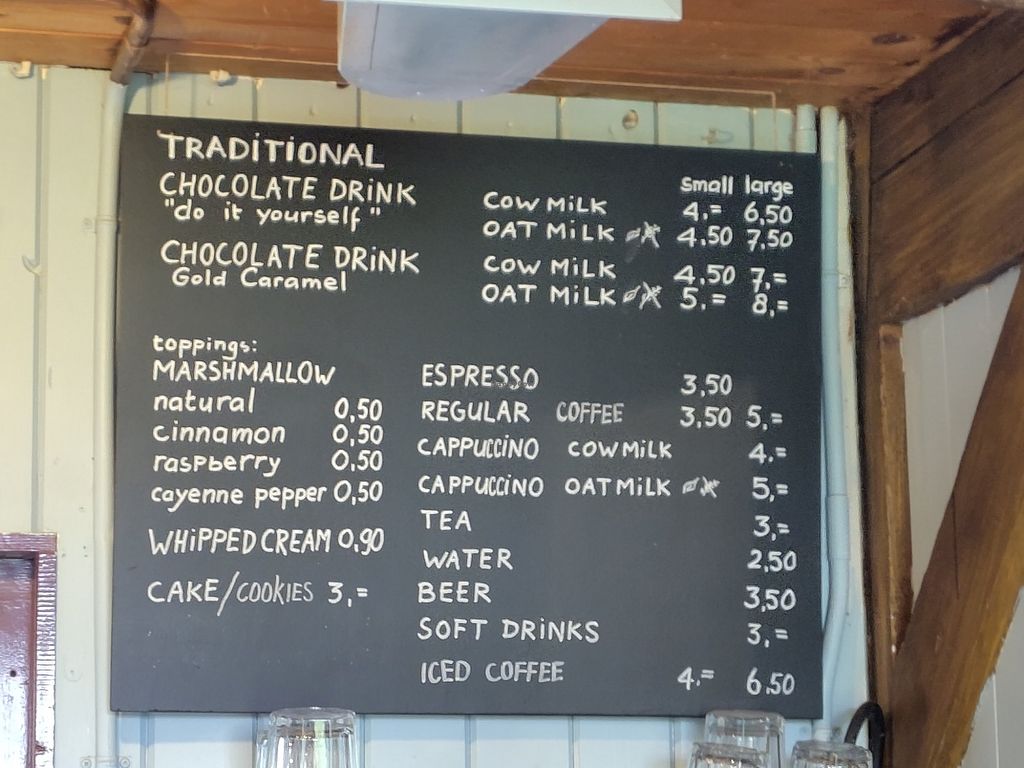 TRADITIONAL
small large
CHOCOLATE DRINK COW MILK 4,= 6,50
"do it yourself" OAT MILK 4,50 7,50
CHOCOLATE DRINK COW MILK 4,50 7,=
Gold Caramel OAT MILK 5,= 8,=
toppings:
MARSHMALLOW
natural 0,50
cinnamon 0,50
raspberry 0,50
cayenne pepper 0,50
WHIPPED CREAM 0,90
CAKE/COOKIES 3,=
ESPRESSO 3,50
REGULAR COFFEE 3,50 5,=
CAPPUCCINO COWMILK 4.=
CAPPUCCINO OATMILK 5,=
TEA 3,=
WATER 2,50
BEER 3,50
SOFT DRINKS 3,=
ICED COFFEE 4.= 6.50